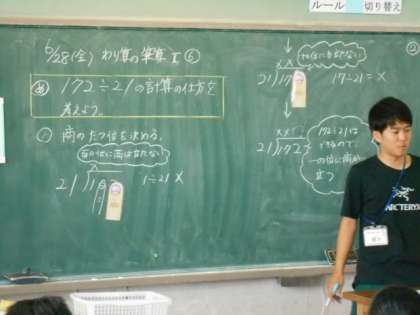 ルール
切り替え
6/28(金) わり算の筆算Ⅱ⑥
め 172÷21の計算の仕方を
考えよう。
① 商のたつ位を決める。
百の位に商は立たない
X
21)1
1÷21 X
十の位に商は立たない
X X
21)17
17÷21=X
X X
21)172
172÷21は
できるので、
一の位に商が
立つ
ARC'TERYX